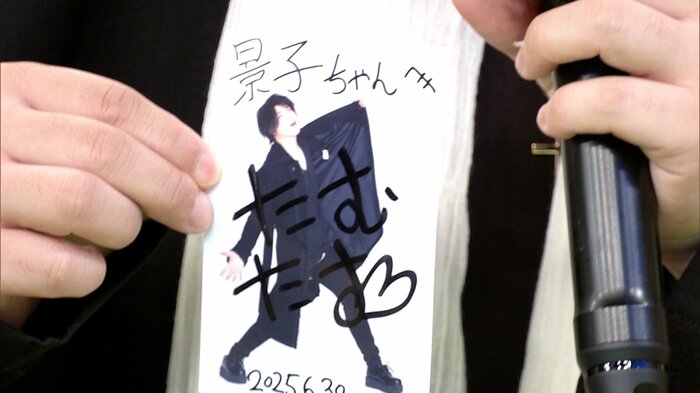 景子ちゃんへ
たむ
たむ♡
2025.6.30